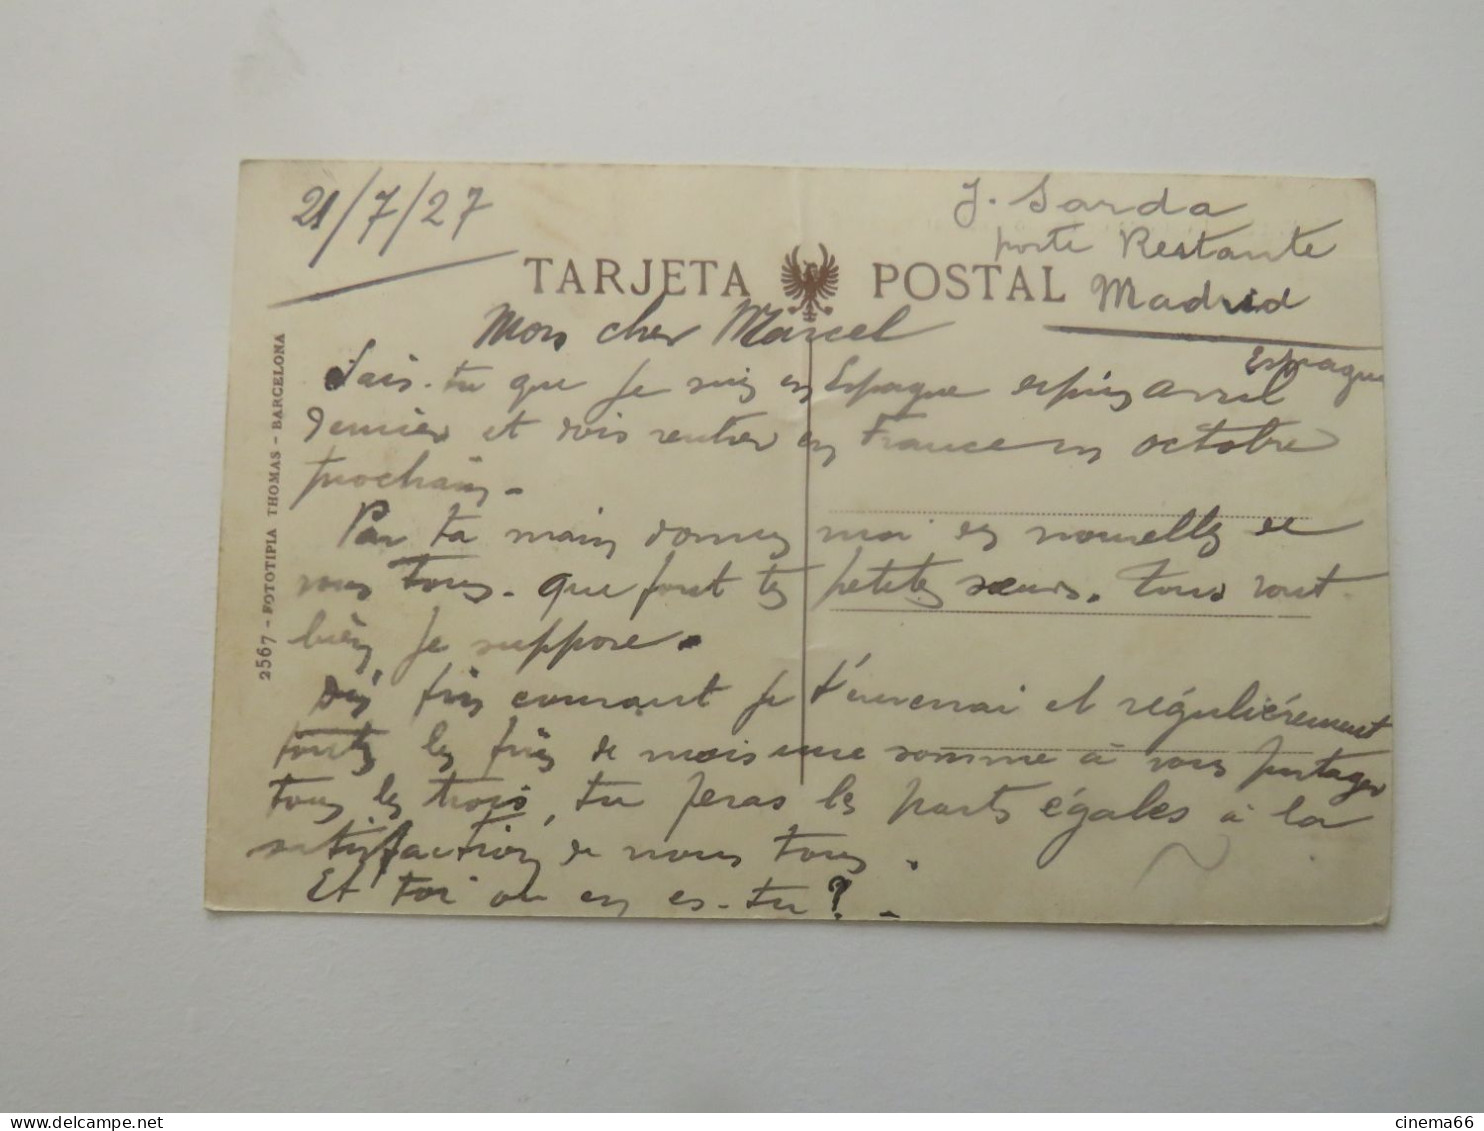 21/7/27
J. Sarda
poste Restante
Madrid
Espagne
TARJETA POSTAL
2567 - FOTOTIPIA THOMAS - BARCELONA
Mon cher Marcel
Sais-tu que je suis en Espagne depuis avril
dernier et dois rentrer en France en octobre
prochain.
Par ta main donnes moi des nouvelles de
vous tous. que font tes petites sœurs. Tous vont
bien je suppose.
Dès fin courant je t'enverrai et régulièrement
toutes les fins de mois une somme à vous partager
tous les trois, tu feras les parts égales à la
satisfaction de nous tous.
Et toi où en es-tu?.
cinema66